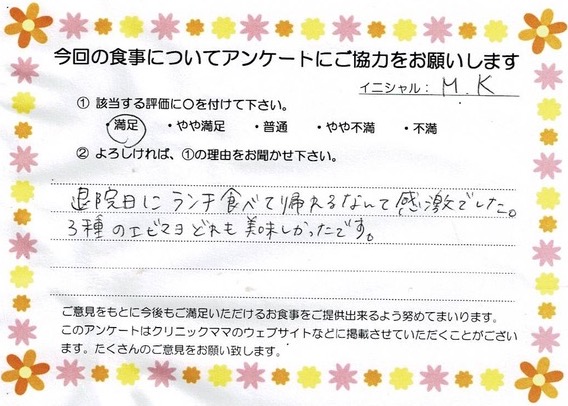 今回の食事についてアンケートにご協力をお願いします
イニシャル： M. K
① 該当する評価に○を付けて下さい。
・満足 ・やや満足 ・普通 ・やや不満 ・不満
② よろしければ、①の理由をお聞かせ下さい。
退院日にランチ食べて帰れるなんて感激でした。
3種のエビマヨどれも美味しかったです。
ご意見をもとに今後もご満足いただけるお食事をご提供出来るよう努めてまいります。
このアンケートはクリニックママのウェブサイトなどに掲載させていただくことがござい
ます。たくさんのご意見をお願い致します。